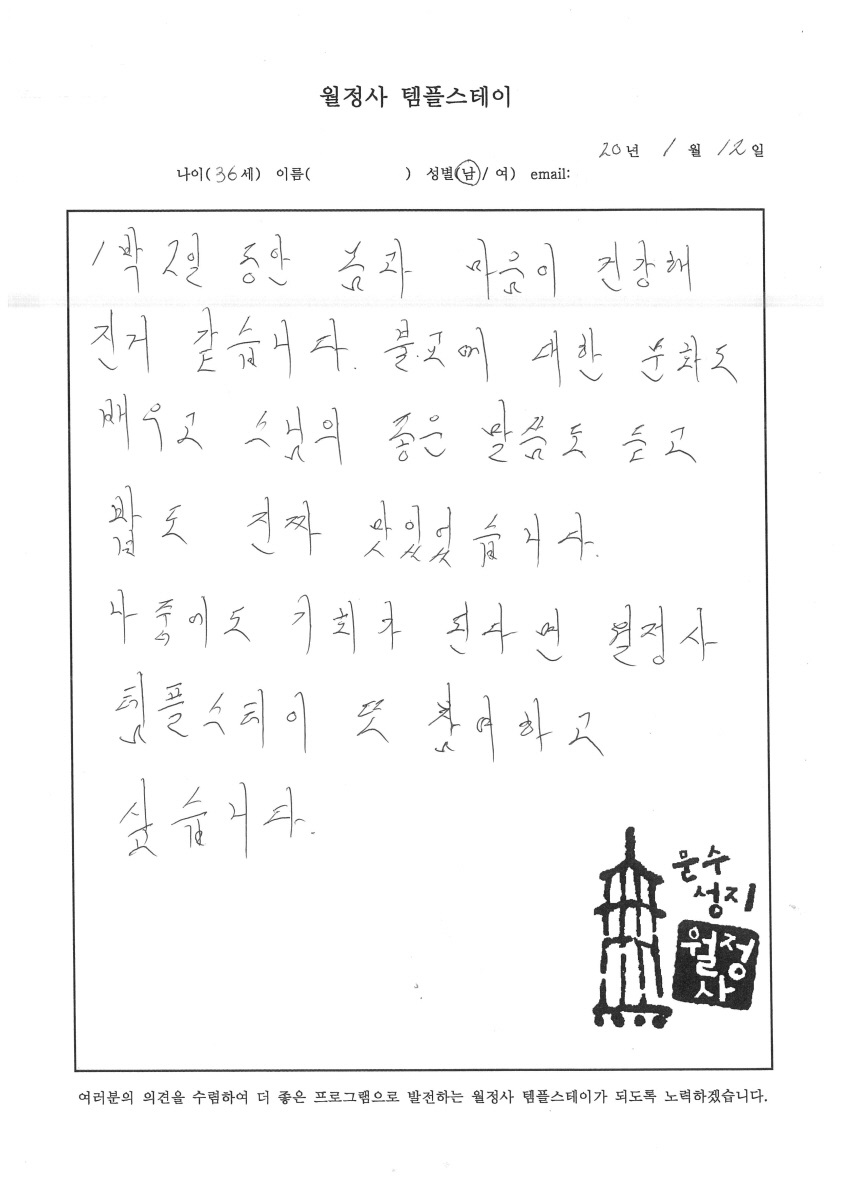 월정사 템플스테이
20년 1월 12일
나이(36세) 이름( ) 성별(남/여) email:
1박 2일 동안 몸과 마음이 건강해
진거 같습니다. 불교에 대한 문화도
배우고 스님의 좋은 말씀도 듣고
밥도 진짜 맛있었습니다.
나중에도 기회가 된다면 월정사
템플스테이 또 참여하고
싶습니다.
문수
성지
월정
사
여러분의 의견을 수렴하여 더 좋은 프로그램으로 발전하는 월정사 템플스테이가 되도록 노력하겠습니다.